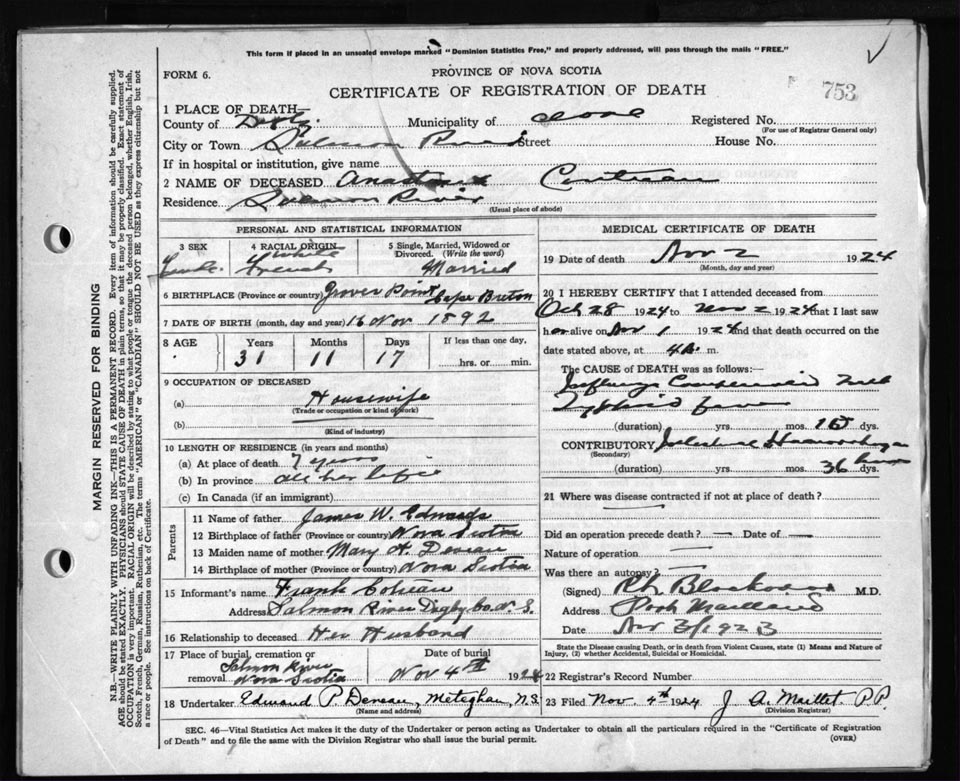 This form if placed in an unsealed envelope marked "Dominion Statistics Free," and properly addressed, will pass through the mails "FREE."
FORM 6.
PROVINCE OF NOVA SCOTIA
CERTIFICATE OF REGISTRATION OF DEATH
753
1 PLACE OF DEATH—
County of Digby. Municipality of Clare Registered No.
(For use of Registrar General only)
City or Town Salmon River Street House No.
If in hospital or institution, give name
2 NAME OF DECEASED
Residence Salmon River
(Usual place of abode)
PERSONAL AND STATISTICAL INFORMATION
3 SEX
Female
4 RACIAL ORIGIN
White
French
5 Single, Married, Widowed or Divorced. (Write the word)
Married
6 BIRTHPLACE (Province or country) Point Cape Breton
7 DATE OF BIRTH (month, day and year) 16 Nov 1892
8 AGE Years Months Days If less than one day,
31 11 17 hrs. or min.
9 OCCUPATION OF DECEASED
(a) Housewife
(Trade or occupation or kind of work)
(b)
(Kind of industry)
10 LENGTH OF RESIDENCE (in years and months)
(a) At place of death 7 years
(b) In province all her life
(c) In Canada (if an immigrant)
Parents
11 Name of father James W. Edwards
12 Birthplace of father (Province or country) Nova Scotia
13 Maiden name of mother Mary A. Deveau
14 Birthplace of mother (Province or country) Nova Scotia
15 Informant's name Frank
Address Salmon River Digby Co. N. S.
16 Relationship to deceased Her Husband
17 Place of burial, cremation or removal Date of burial
Salmon River
Nova Scotia Nov 4th 1924
18 Undertaker Edward P. Deveau, Meteghan, N.S.
(Name and address)
MEDICAL CERTIFICATE OF DEATH
19 Date of death Nov 2 1924
(Month, day and year)
20 I HEREBY CERTIFY that I attended deceased from
Oct 28 1924 to Nov 2 1924 that I last saw
her alive on Nov 1 1924 and that death occurred on the
date stated above, at 4 a. m.
The CAUSE of DEATH was as follows:—
Typhoid fever
(duration) yrs. mos. dys.
CONTRIBUTORY
(Secondary)
(duration) yrs. mos. 36 hours dys.
21 Where was disease contracted if not at place of death?
Did an operation precede death? — Date of —
Nature of operation —
Was there an autopsy? —
(Signed) M.D.
Address Port Maitland
Date Nov 3/1923
State the Disease Causing Death, or in death from Violent Causes, state (1) Means and Nature of Injury, (2) whether Accidental, Suicidal or Homicidal.
22 Registrar's Record Number
23 Filed Nov. 4th 1924 J. A. Maillet P.P.
(Division Registrar)
SEC. 46—Vital Statistics Act makes it the duty of the Undertaker or person acting as Undertaker to obtain all the particulars required in the "Certificate of Registration
of Death" and to file the same with the Division Registrar who shall issue the burial permit. (OVER)
MARGIN RESERVED FOR BINDING
N.B.—WRITE PLAINLY WITH UNFADING INK—THIS IS A PERMANENT RECORD. Every item of information should be carefully supplied.
AGE should be stated EXACTLY. PHYSICIANS should STATE CAUSE OF DEATH in plain terms, so that it may be properly classified. Exact statement of
OCCUPATION is very important. RACIAL ORIGIN will be described by stating to what people or tongue the deceased person belonged, whether English, Irish,
Scotch, French, German, Russian, Ruthenian, etc. The terms "AMERICAN" or "CANADIAN" SHOULD NOT BE USED as they express citizenship but not
a race or people. See instructions on back of Certificate.